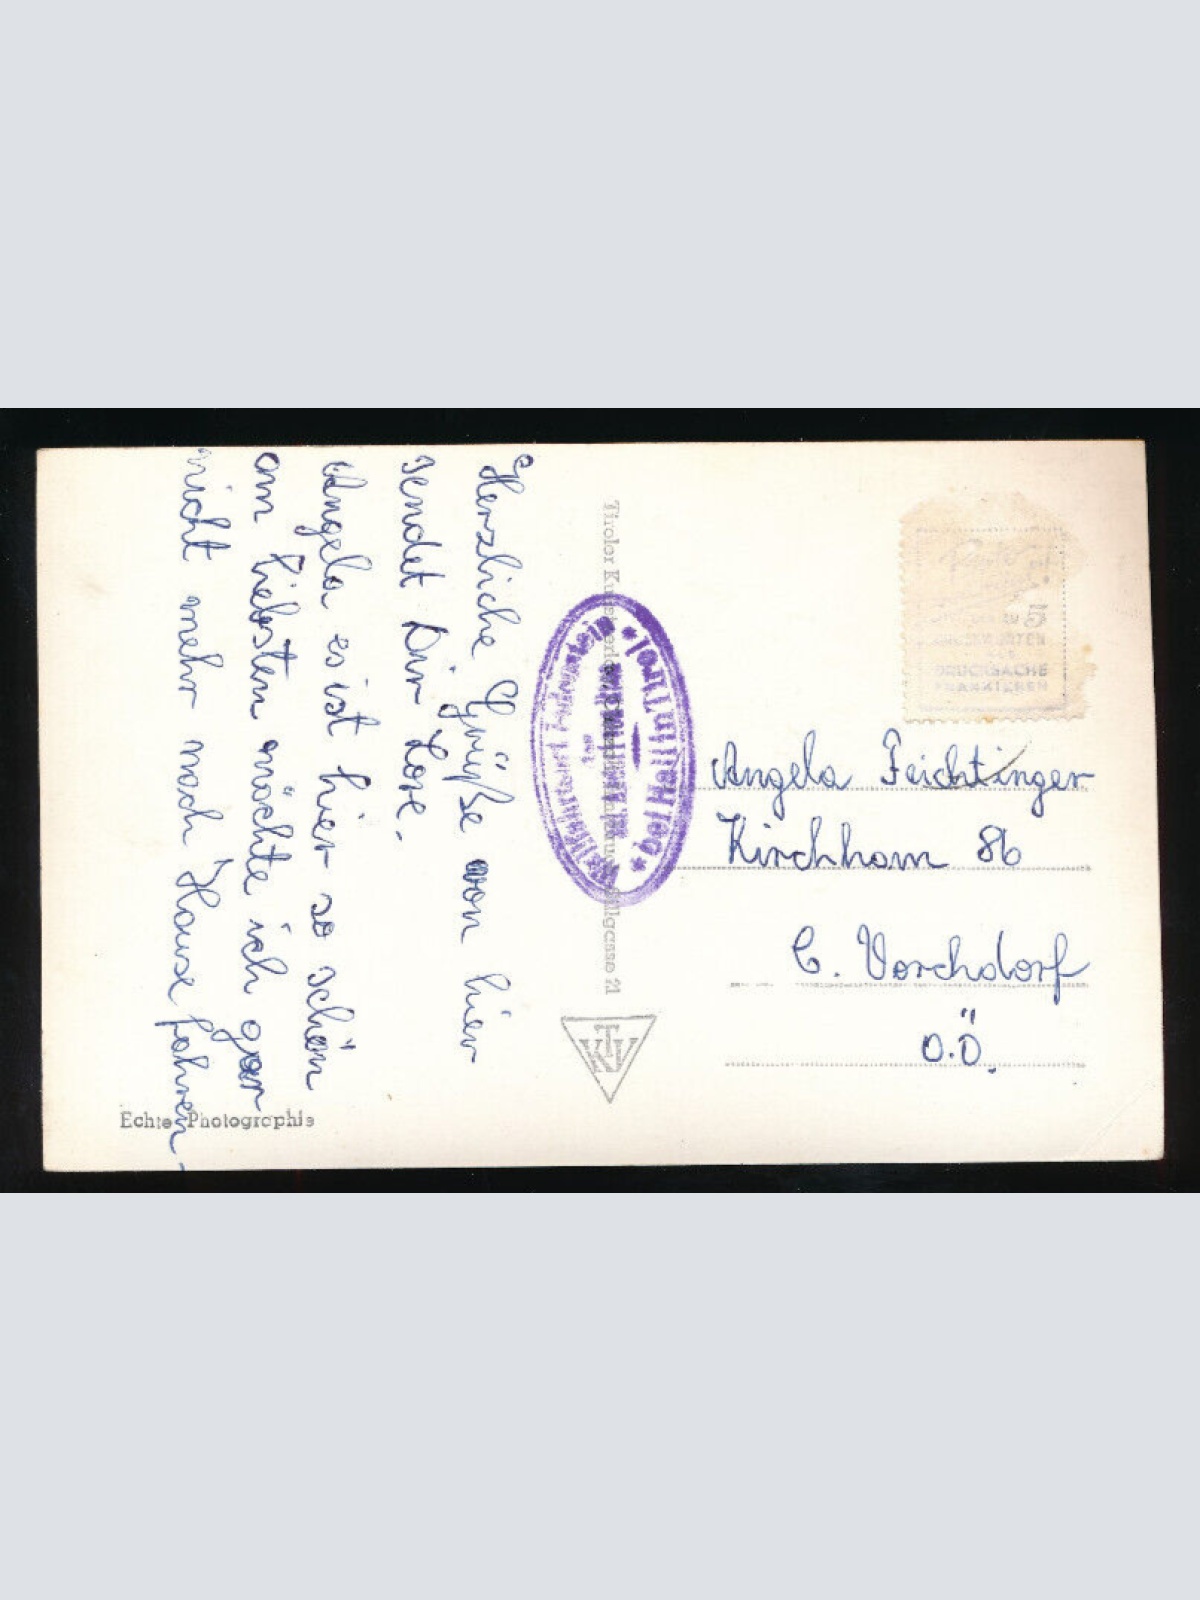 Herzliche Grüße von hier
sendet Dir Lore.
Angela es ist hier so schön
am liebsten möchte ich gar
nicht mehr nach Hause fahren.
Echte Photographie
Tiroler
21
TKV
bei Hall in Tirol
5
DRUCKSACHE
FRANKIEREN
Angela Feichtinger
Kirchham 86
b. Vorchdorf
O.Ö.